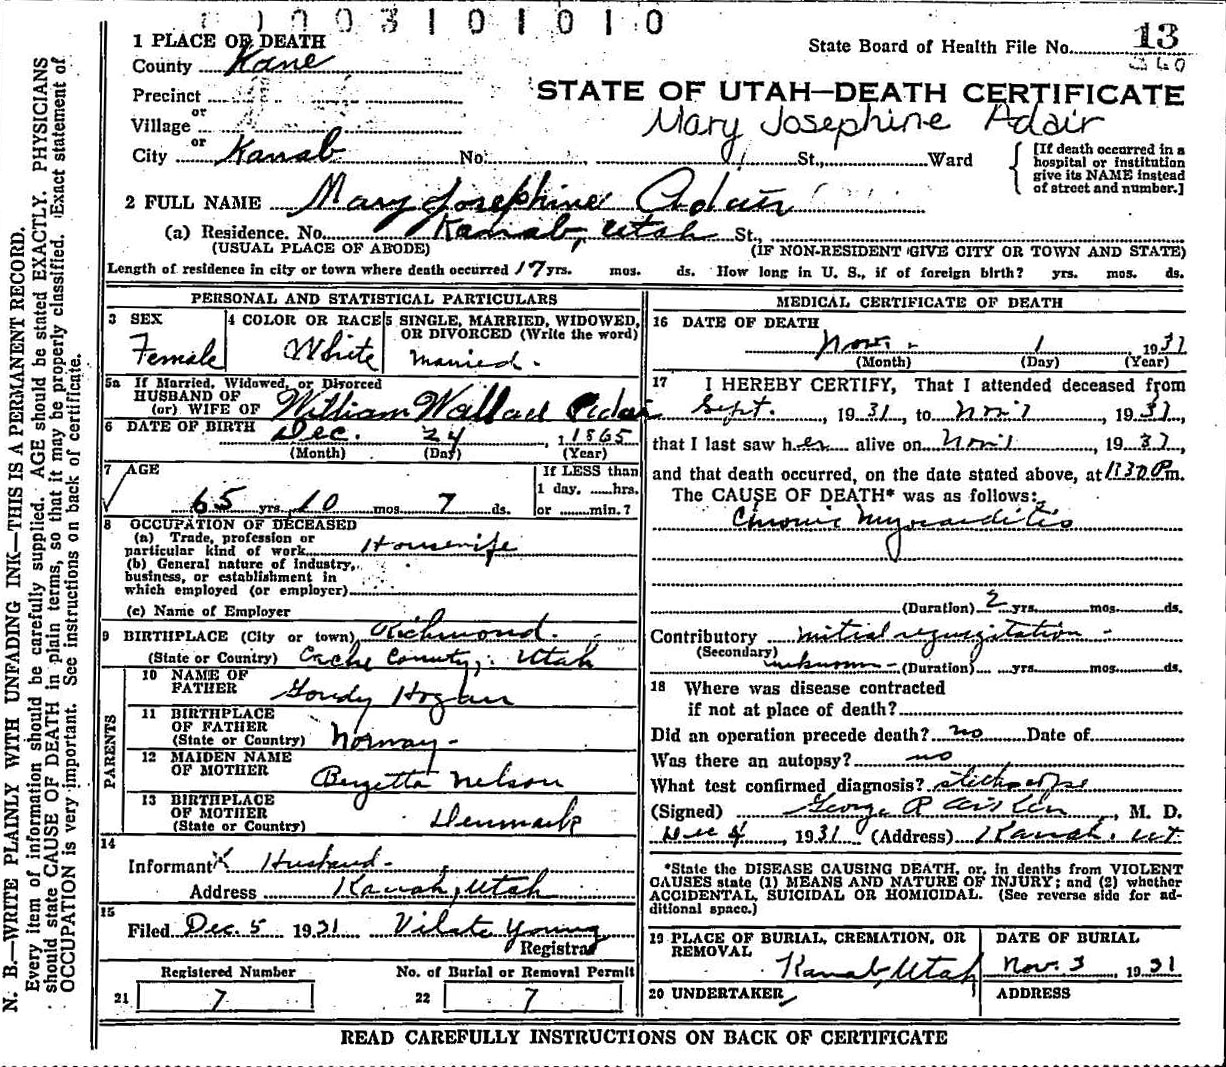 003101010
1 PLACE OF DEATH
State Board of Health File No. 13
360
County Kane
Precinct
or
Village
or
City Kanab No. St., Ward
STATE OF UTAH—DEATH CERTIFICATE
Mary Josephine Adair
[If death occurred in a hospital or institution give its NAME instead of street and number.]
2 FULL NAME Mary Josephine Adair
(a) Residence. No. Kanab, Utah St.,
(USUAL PLACE OF ABODE) (IF NON-RESIDENT GIVE CITY OR TOWN AND STATE)
Length of residence in city or town where death occurred 17 yrs. mos. ds. How long in U. S., if of foreign birth? yrs. mos. ds.
PERSONAL AND STATISTICAL PARTICULARS
3 SEX
Female
4 COLOR OR RACE
White
5 SINGLE, MARRIED, WIDOWED, OR DIVORCED (Write the word)
Married.
5a If Married, Widowed, or Divorced
HUSBAND OF
(or) WIFE OF William Wallace Adair
6 DATE OF BIRTH Dec. 24, 1865
(Month) (Day) (Year)
7 AGE
65 yrs. 10 mos. 7 ds.
If LESS than
1 day, hrs.
or min.?
8 OCCUPATION OF DECEASED
(a) Trade, profession or
particular kind of work Housewife
(b) General nature of Industry,
business, or establishment in
which employed (or employer)
(c) Name of Employer
9 BIRTHPLACE (City or town) Richmond.
(State or Country) Cache County, Utah
PARENTS
10 NAME OF
FATHER Goudy Hogan
11 BIRTHPLACE
OF FATHER
(State or Country) Norway-
12 MAIDEN NAME
OF MOTHER Bergetta Nelson
13 BIRTHPLACE
OF MOTHER
(State or Country) Denmark
14
Informant X Husband-
Address Kanab, Utah
15
Filed Dec 5 1931 Vilate Young
Registrar
Registered Number No. of Burial or Removal Permit
21 7 22 7
MEDICAL CERTIFICATE OF DEATH
16 DATE OF DEATH
Nov. 1 1931
(Month) (Day) (Year)
17 I HEREBY CERTIFY, That I attended deceased from
Sept. , 1931, to Nov 1 , 1931,
that I last saw her alive on Nov 1 , 1931,
and that death occurred, on the date stated above, at 11:30 P m.
The CAUSE OF DEATH* was as follows:
Chronic Myocarditis
(Duration) 2 yrs. mos. ds.
Contributory Mitral regurgitation -
(Secondary)
unknown- (Duration) yrs. mos. ds.
18 Where was disease contracted
if not at place of death?
Did an operation precede death? no Date of
Was there an autopsy? no
What test confirmed diagnosis? stethoscope
(Signed) George R Aiken , M. D.
Dec 4, 1931 (Address) Kanab, Ut
*State the DISEASE CAUSING DEATH, or, in deaths from VIOLENT
CAUSES state (1) MEANS AND NATURE OF INJURY; and (2) whether
ACCIDENTAL, SUICIDAL OR HOMICIDAL. (See reverse side for ad-
ditional space.)
19 PLACE OF BURIAL, CREMATION, OR
REMOVAL
Kanab, Utah
DATE OF BURIAL
Nov. 3 , 1931
20 UNDERTAKER ADDRESS
READ CAREFULLY INSTRUCTIONS ON BACK OF CERTIFICATE
N. B.—WRITE PLAINLY WITH UNFADING INK—THIS IS A PERMANENT RECORD.
Every item of information should be carefully supplied. AGE should be stated EXACTLY. PHYSICIANS
should state CAUSE OF DEATH in plain terms, so that it may be properly classified. Exact statement of
OCCUPATION is very important. See instructions on back of certificate.